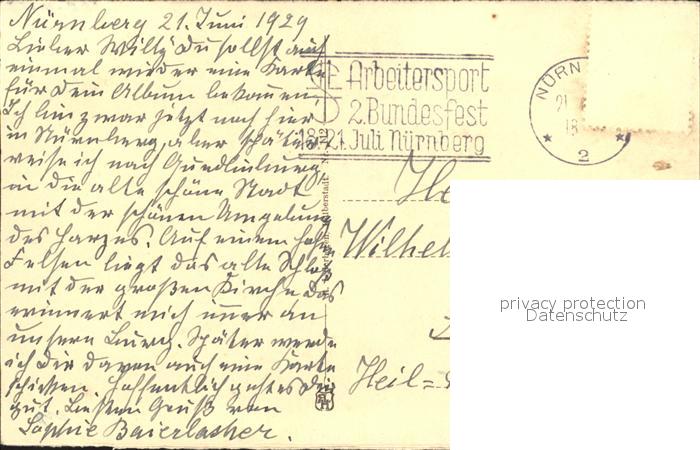 Nürnberg 21. Juni 1929
Lieber Willy Du sollst auch
einmal wieder eine Karte
für Dein Album bekommen
Ich bin zwar jetzt noch hier
in Nürnberg, aber später
reise ich nach Quedlinburg,
in die alte schöne Stadt
mit der schönen Umgebung
des Harzes. Auf einem hohen
Felsen liegt das alte Schloß
mit der großen Kirche das
erinnert mich immer an
unsere Burg. Später werde
ich Dir davon auch eine Karte
schicken. Hoffentlich geht es Dir
gut. Besten Gruß von
Sophie Baierlacher.
Arbeitersport
2. Bundesfest
18.-21. Juli Nürnberg
NÜRN
21
18
2
He
Wilhel
Heil=
privacy protection
Datenschutz